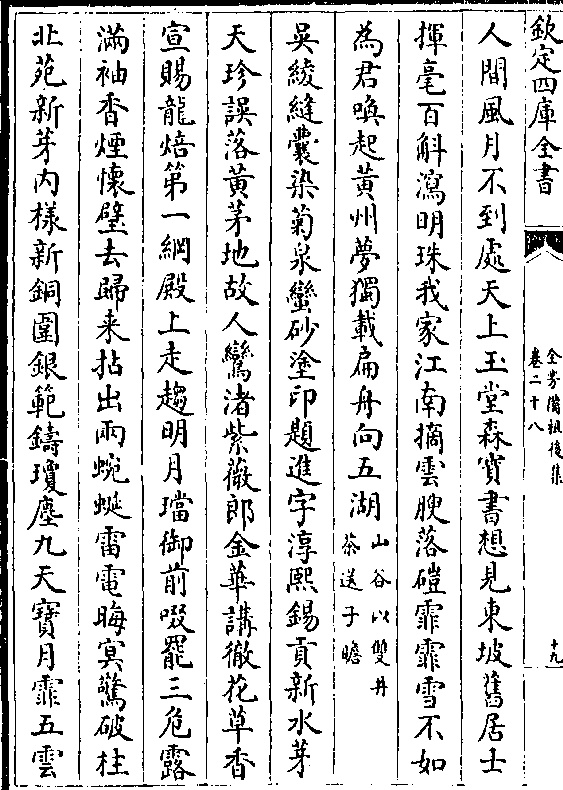 欽定四庫全書
全芳備祖後集
卷二十八
十九
人間風月不到處天上玉堂森寶書想見東坡舊居士
揮毫百斛瀉明珠我家江南摘雲腴落磑霏霏雪不如
為君喚起黃州夢獨載扁舟向五湖
山谷以雙井
茶送子瞻
吳綾縫囊染菊泉蠻砂塗印題進字淳熙錫貢新水芽
天珍誤落黃茅地故人鸞渚紫薇郎金華講徹花草香
宣賜龍焙第一綱殿上走趨明月璫御前啜罷三危露
滿袖香煙懷璧去歸来拈出兩蜿蜒雷電晦冥驚破柱
北苑新芽内樣新銅圍銀範鑄瓊塵九天寶月霏五雲